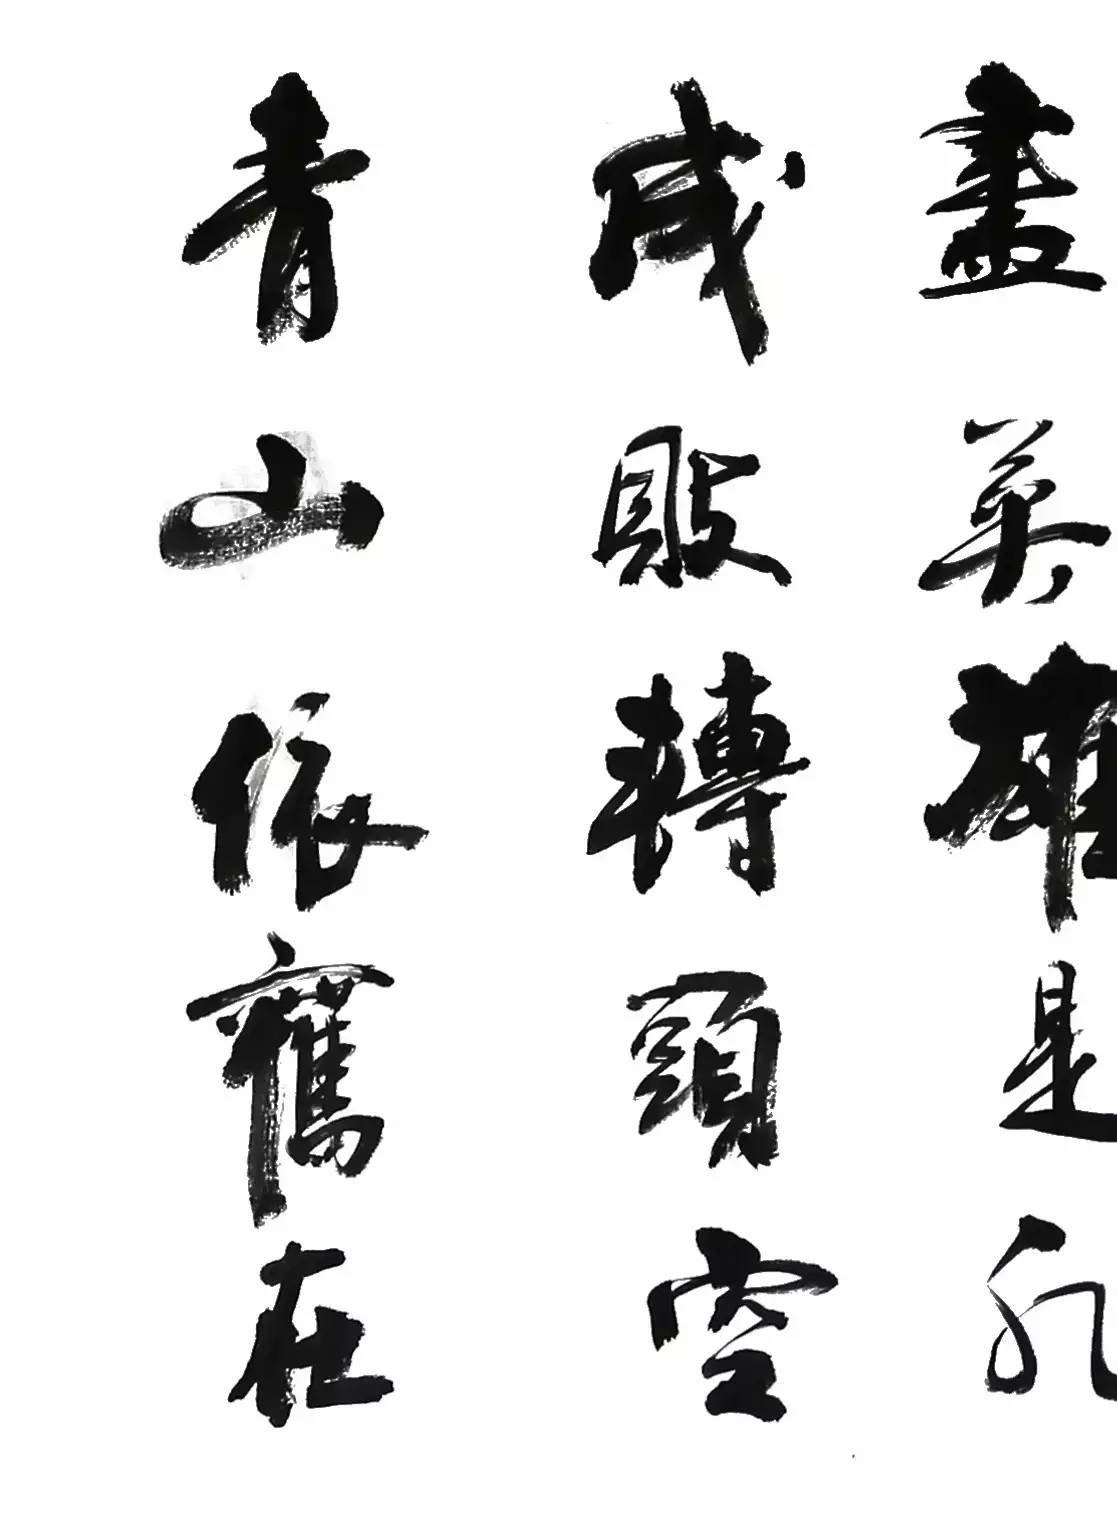 盡英雄是非
成敗轉頭空
青山依舊在